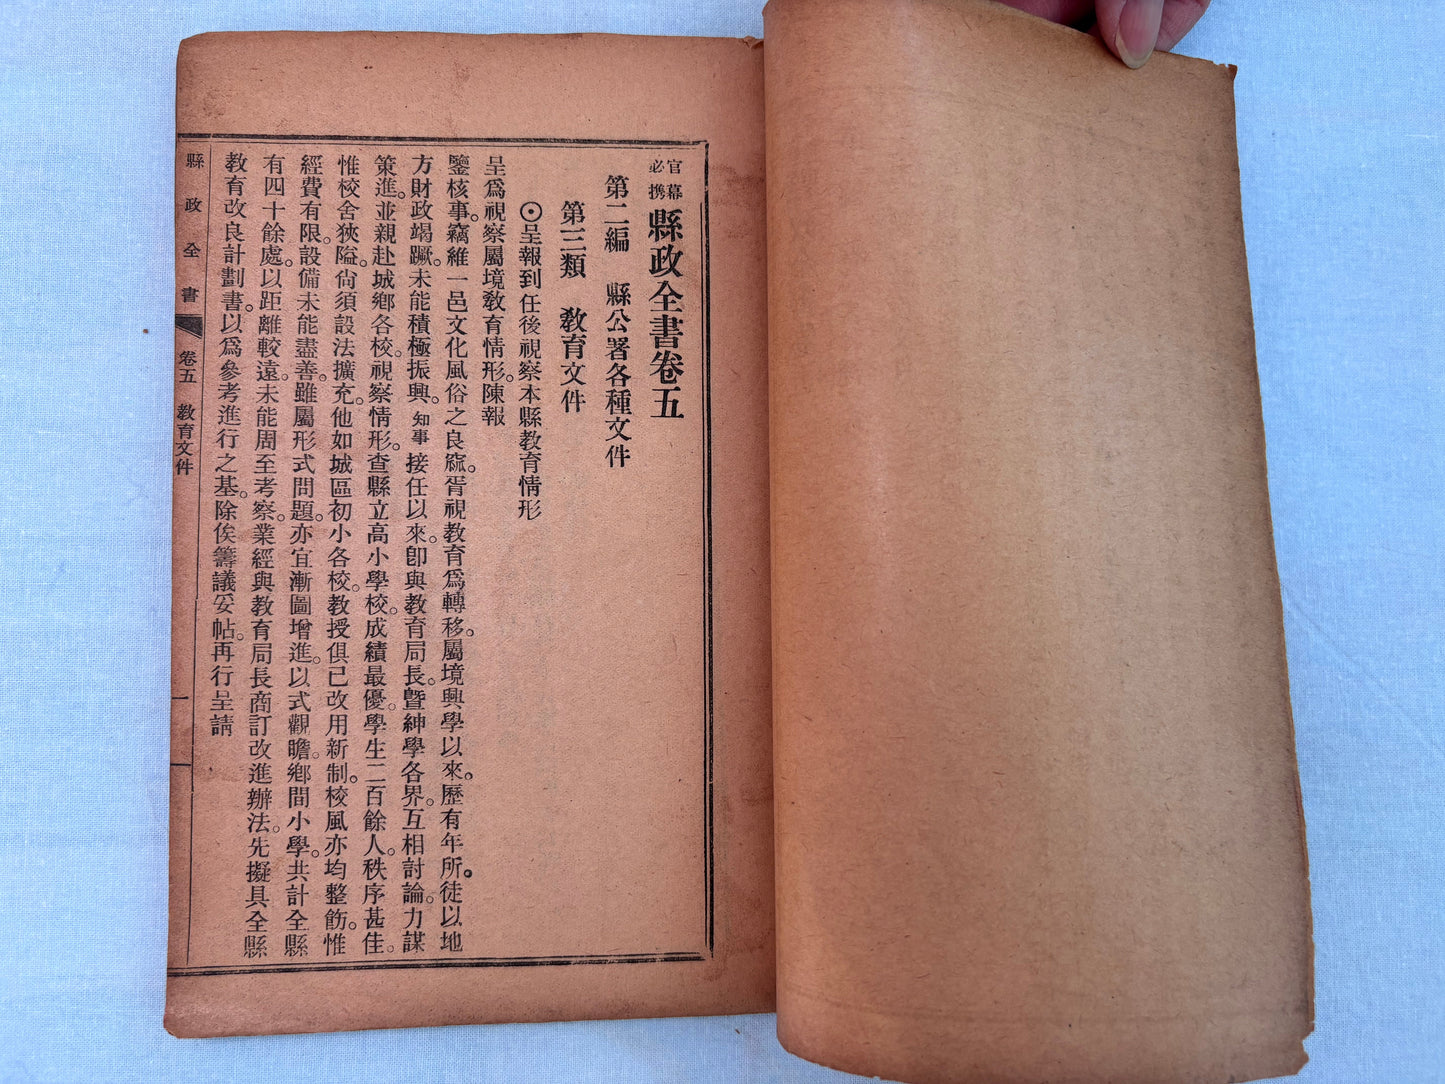 官幕必携 縣政全書卷五
第二編　縣公署各種文件
第三類　敎育文件
⊙呈報到任後視察本縣敎育情形
呈爲視察屬境敎育情形。陳報
鑒核事。竊維一邑文化風俗之良窳。胥視敎育爲轉移。屬境興學以來。歷有年所。徒以地
方財政竭蹶。未能積極振興。知事接任以來。卽與敎育局長。曁紳學各界。互相討論。力謀
策進。並親赴城鄕各校。視察情形。查縣立高小學校。成績最優。學生二百餘人。秩序甚佳。
惟校舍狹隘。尙須設法擴充。他如城區初小各校。敎授俱已改用新制。校風亦均整飭。惟
經費有限。設備未能盡善。雖屬形式問題。亦宜漸圖增進。以式觀瞻。鄕間小學。共計全縣
有四十餘處。以距離較遠。未能周至考察。業經與敎育局長商訂改進辦法。先擬具全縣
敎育改良計劃書。以爲參考進行之基。除俟籌議妥帖。再行呈請
縣政全書　卷五　敎育文件　一